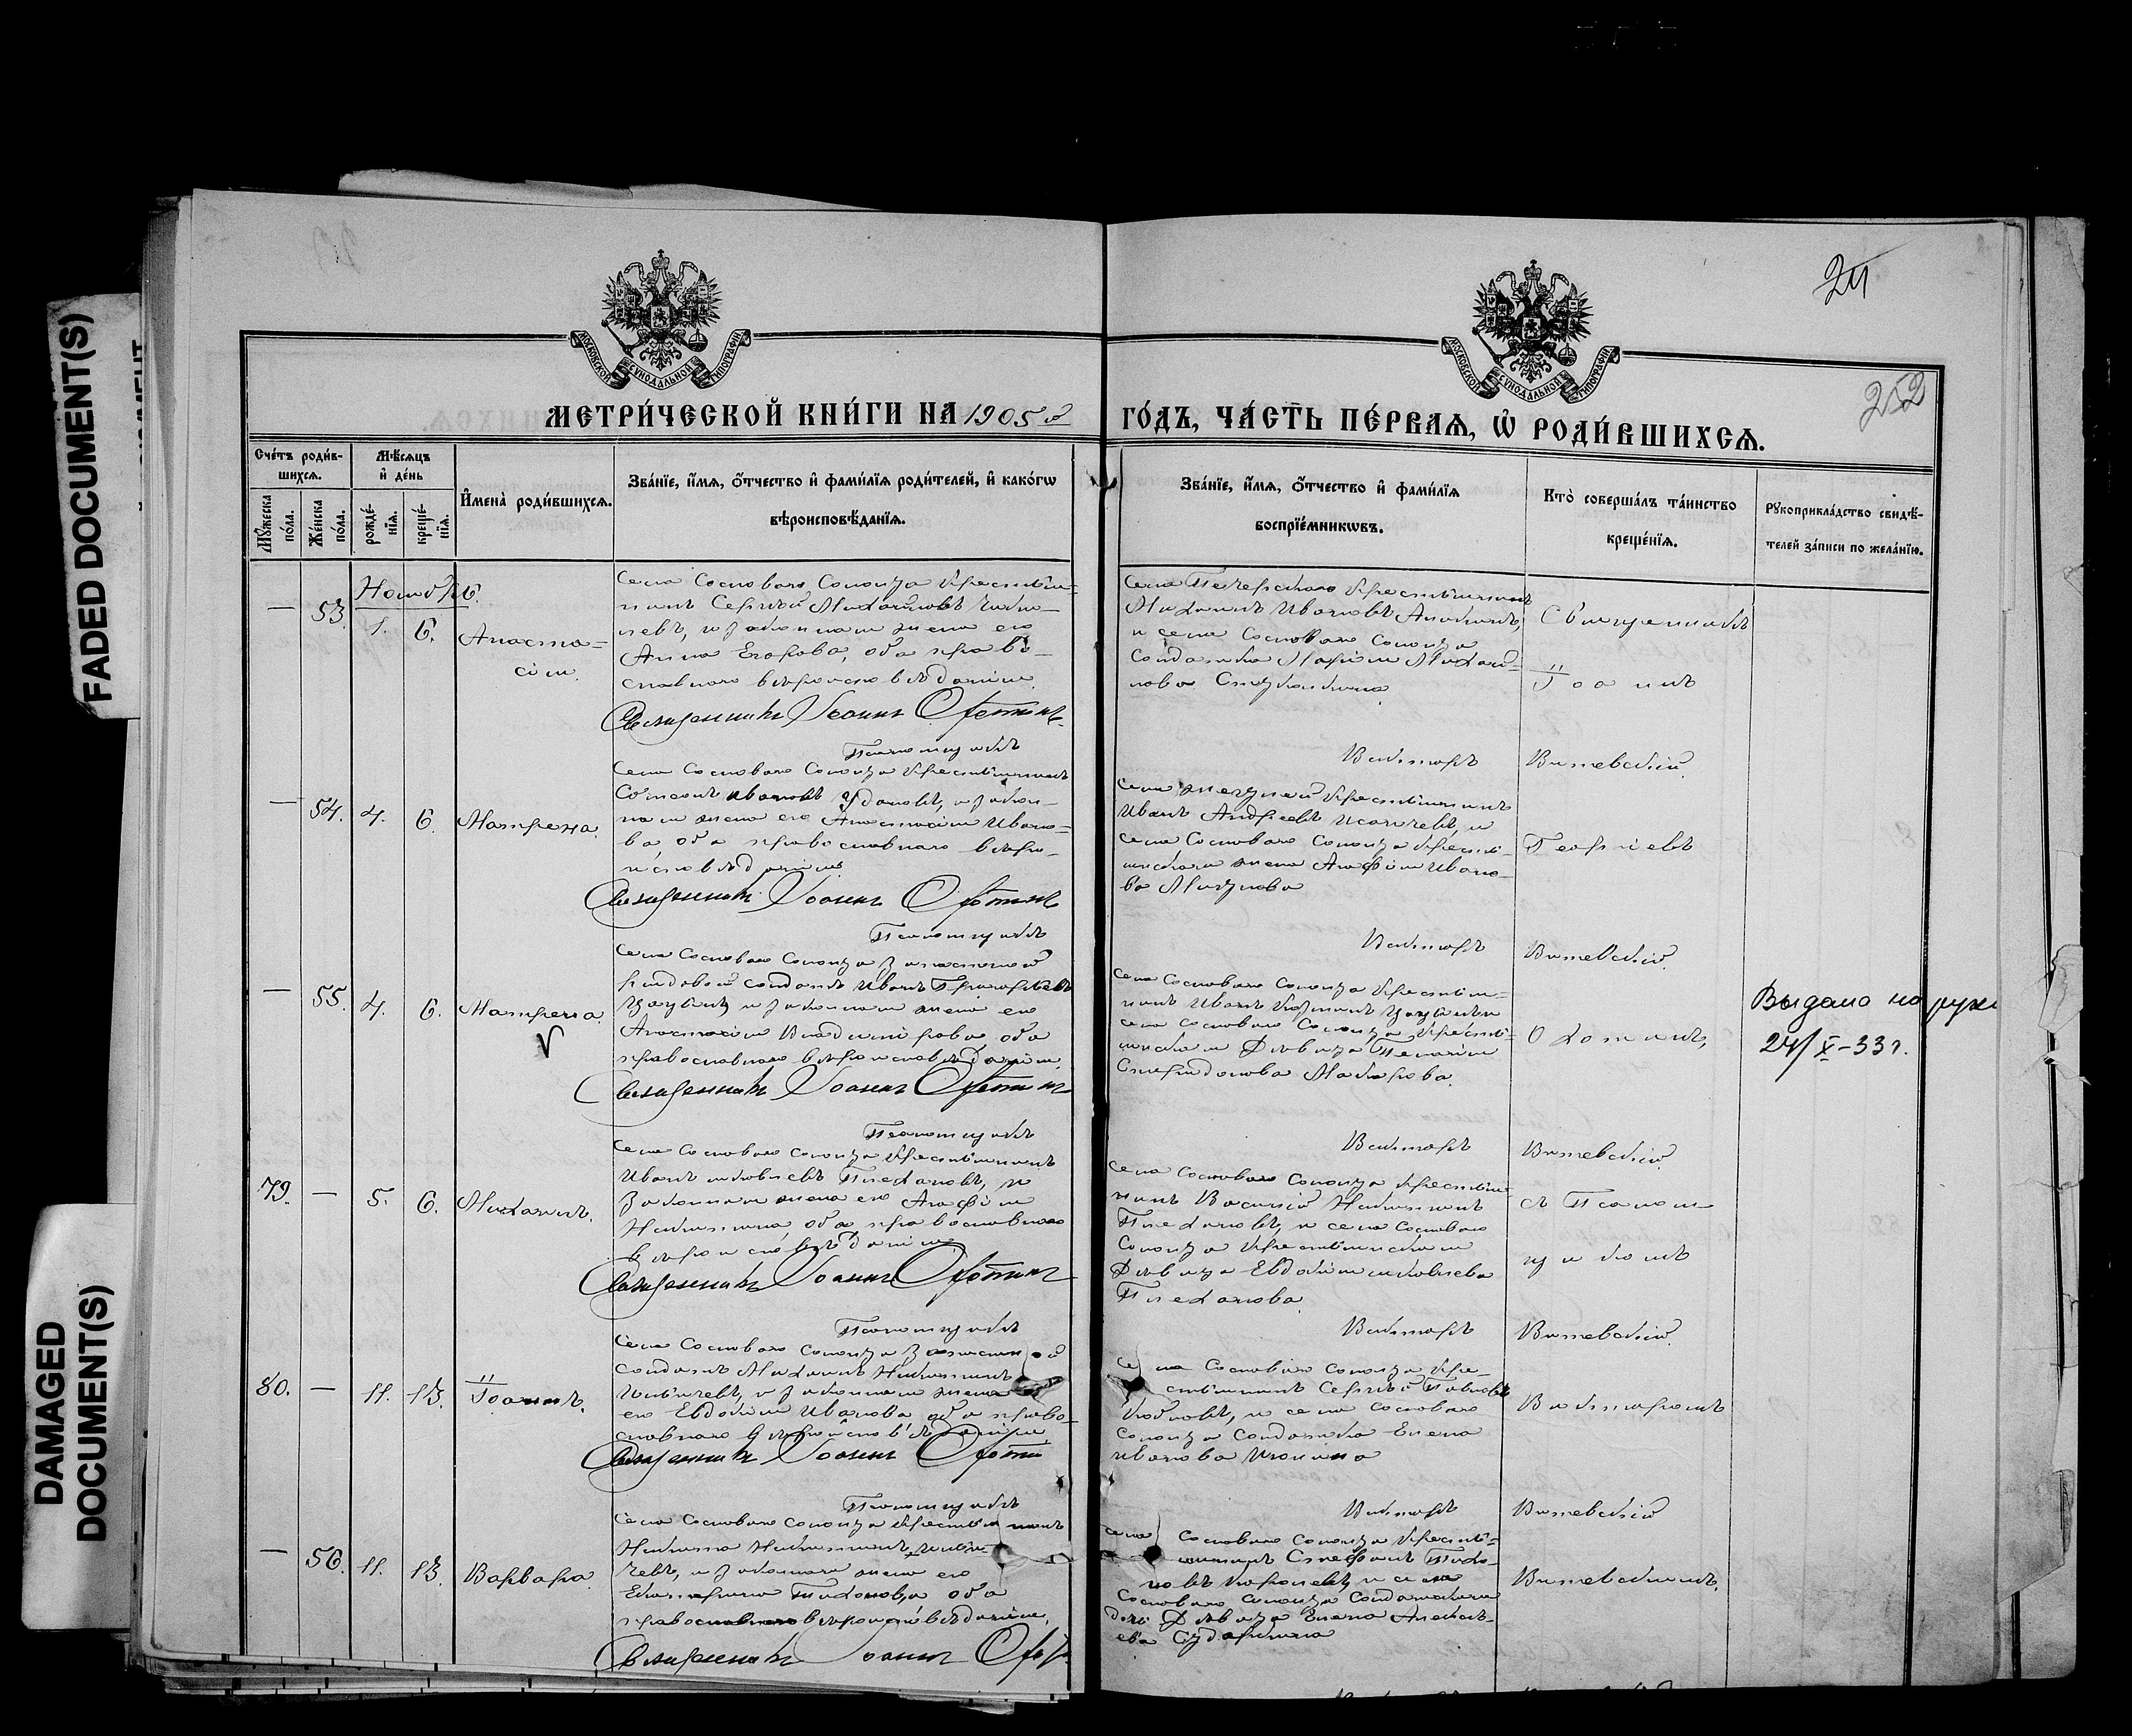 FADED DOCUMENT(S)
DAMAGED
DOCUMENT(S)
24
252
МОСКОВСКОЙ СУНОДАЛЬНОЙ ТИПОГРАФІИ
МОСКОВСКОЙ СУНОДАЛЬНОЙ ТИПОГРАФІИ
МЕТРИ́ЧЕСКОЙ КНИ́ГИ НА 1905й
ГО́ДЪ, ЧА́СТЬ ПЕ́РВАѦ, Ѽ РОДИ́ВШИХСѦ.
Сче́тъ роди́в-
шихсѧ.
Мѣсѧцъ
и҆ де́нь
Мꙋжеска по́ла.
Же́нска по́ла.
рожде́-
нїѧ.
креще́-
нїѧ.
И҆мена̀ роди́вшихсѧ.
Зва́нїе, и҆́мѧ, ѻ҆́тчество и҆ фами́лїѧ роди́телей, и҆ како́гѡ
вѣроисповѣ́данїѧ.
Зва́нїе, и҆́мѧ, ѻ҆́тчество и҆ фами́лїѧ
воспрїе́мникѡвъ.
Кто̀ соверша́лъ та́инство
креще́нїѧ.
Рꙋкоприкла́дство свидѣ́-
телей за́писи по жела́нїю.
Ноябрь.
— 53. 1. 6. Анаста=
сія.
Села Сосноваго Солонца крестья-
нинъ Сергѣй Михайловъ
и законная жена его
Анна Егорова, оба право-
славнаго вѣроисповѣданія.
Священникъ Іоаннъ Охотинъ
Псаломщикъ
Села Печерскаго крестьянинъ
Михаилъ Ивановъ Аникинъ,
и села Сосноваго Солонца
солдатка Марія Михай-
лова
Викторъ
Священникъ
Іоаннъ
Витевскій.
— 54. 4. 6. Матрена.
Села Сосноваго Солонца крестьянинъ
Ивановъ Удаловъ, и закон-
ная жена его Анастасія Ивано-
ва оба православнаго вѣро-
исповѣданія
Священникъ Іоаннъ Охотинъ
Псаломщикъ
Села крестьянинъ
Иванъ Андреевъ Исаичевъ, и
села Сосноваго Солонца крестья-
нская жена Агафія Ивано-
ва
Викторъ
Георгіевъ
Витевскій.
— 55. 4. 6. Матрена.
V
Села Сосноваго Солонца запасной
рядовой солдатъ Иванъ Григорьевъ
и законная жена его
Анастасія Владимірова оба
православнаго вѣроисповѣданія.
Священникъ Іоаннъ Охотинъ
Псаломщикъ
Села Сосноваго Солонца крестья-
нинъ Иванъ
села Сосноваго Солонца крестья-
нская дѣвица Пелагія
Спиридонова Макарова.
Викторъ
Охотинъ,
Витевскій.
Выдано на руки
24/X-33г.
79. — 5. 6. Михаилъ.
Села Сосноваго Солонца крестьянинъ
Иванъ Яковлевъ Плехановъ, и
законная жена его Агафія
Никитина, оба православнаго
вѣроисповѣданія
Священникъ Іоаннъ Охотинъ
Псаломщикъ
Села Сосноваго Солонца крестья-
нинъ Василій Никитинъ
Плехановъ, и села Сосноваго
Солонца крестьянская
дѣвица Евдокія Яковлева
Плеханова.
Викторъ
съ Псалом-
щикомъ
Витевскій.
80. — 11. 13. Іоаннъ.
Села Сосноваго Солонца запасной
солдатъ Михаилъ Никитинъ
и законная жена
его Евдокія Иванова, оба право-
славнаго вѣроисповѣданія
Священникъ Іоаннъ Охотин
Псаломщикъ
Села Сосноваго Солонца кре-
стьянинъ Сергѣй Павловъ
и села Сосноваго
Солонца солдатка Елена
Иванова
Викторъ
Викторомъ
Витевскій
— 56. 11. 13. Варвара.
Села Сосноваго Солонца крестьянинъ
Никита Никитинъ
и законная жена его
Екатерина Тихонова, оба
православнаго вѣроисповѣданія,
Священникъ Іоаннъ
Села Сосноваго Солонца крестья=
нинъ Стефанъ
и села
Сосноваго Солонца солдатская
дочь дѣвица Елена
Сударкина
Витевскимъ.